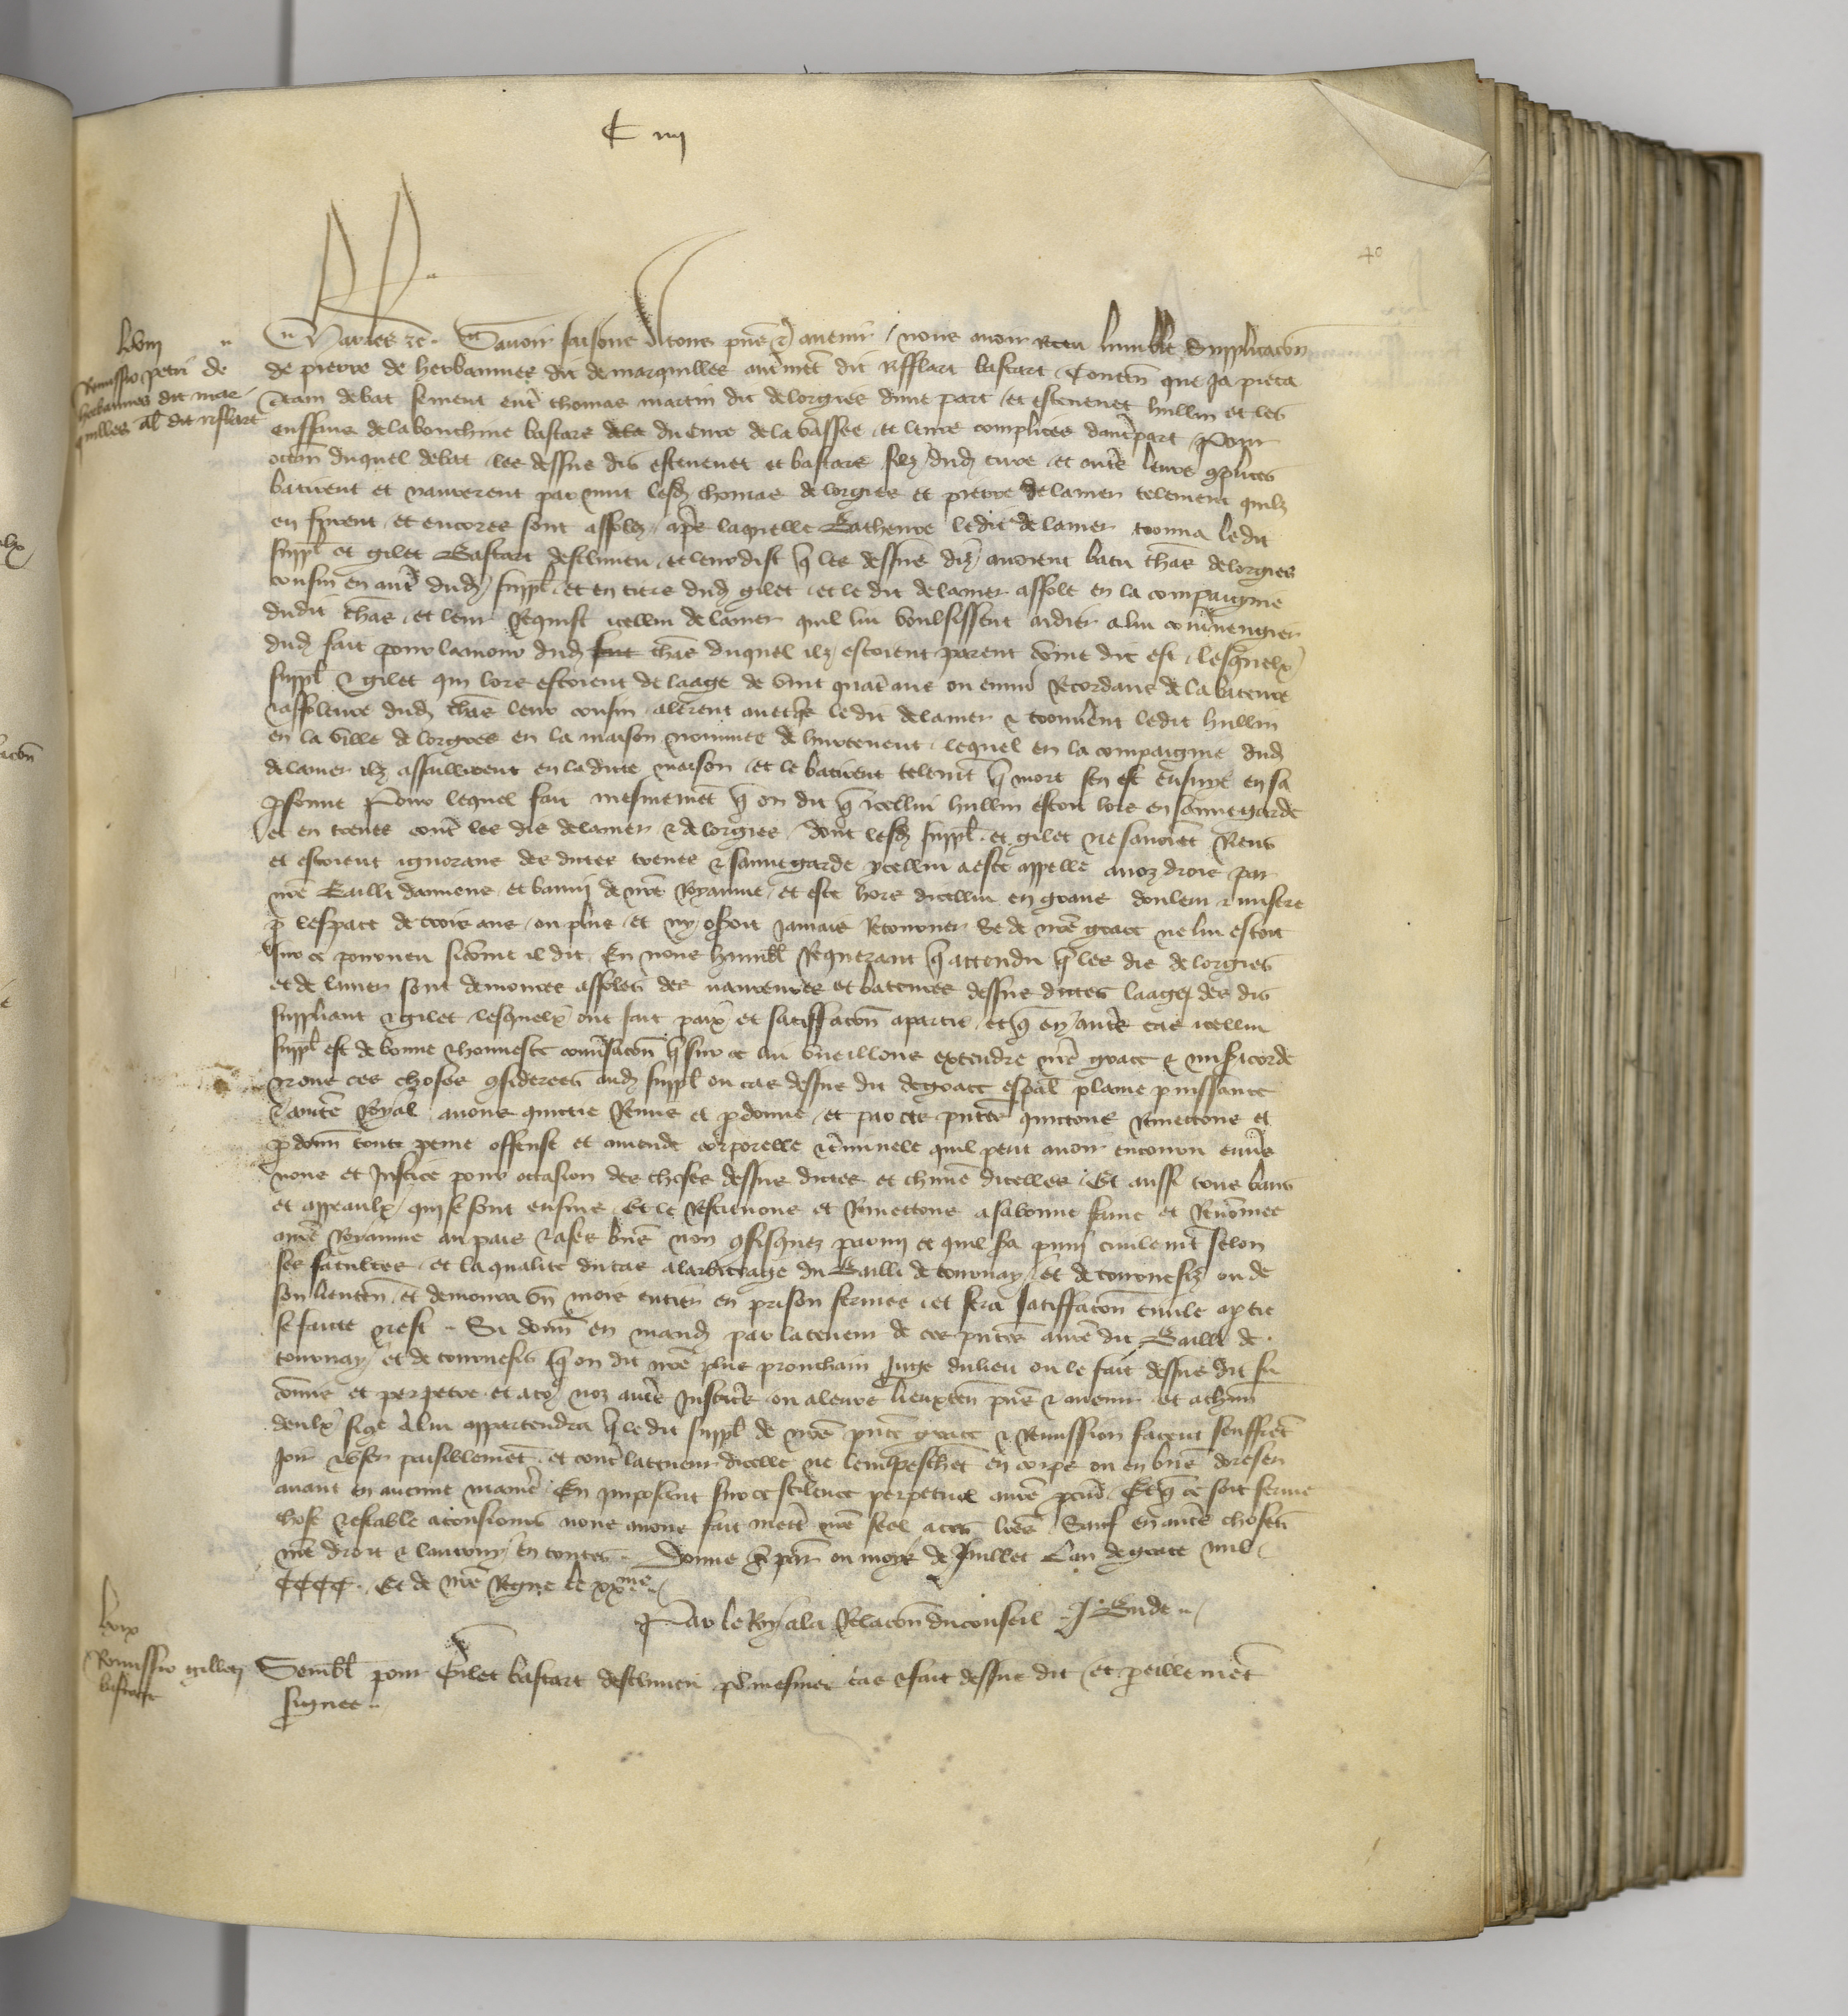 C iiii
40
lviii
Remissio petri de
herbaumes dit mar-
quilles al dit rifflart
Charles etc. Savoir faisons a tous pns et avenir / nous avoir receu lumble Supplicacon
de pierre de herbaumes dit de marquilles autremet dit Rifflart bastart / Conten que Ja pieca
certain debat sement entre thomas martin dit delorgies dune part / et estevenet hullin et les
enffans delabouchine bastars du Cure dela bassee et leurs complices dautrepart / Pour
occon duquel debat / les dessus dis estevenet et bastars filz dud cure / et autres leurs complices
batirent et navrerent par nuit lesd thomas delorgies et pierre delamer telement quilz
en furent / et encores sont affolez / apres laquelle Bateure ledit delamer trouva ledit
suppl et gilet Bastart desclimeu / et leur dist que les dessus diz avoient batu thas delorgies
cousin en autre dud suppl et en tiers dud gilet / et le dit delamer affole en la compaignie
dudit thas / et leur Requist icellui delamer quil lui voulsissent aidier a lui contrevengier
dud fait pour lamour dud thas duquel ilz estoient parent come dit est / lesquelx
suppl et gilet qui lors estoient de laage de vint quatre ans ou environ Recordans de la bateure
et affoleure dud thas leur cousin / alerent avecques ledit delamer et trouverent ledit hullin
en la ville de lorgies en la maison nommee de hurtevent / lequel en la compaignie dud
delamer ilz assaillirent en ladicte maison / et le batirent telemt que mort sen est ensuye en sa
personne Pour lequel fait mesmemet que on dit que icellui hullin estoit lors en sauvegarde
et en treves contre les dis delamer et delorgies / dont lesd suppl et gilet ne savoiet Riens
et estoient ignorans des dictes treves et sauvegarde ycellui a este appelle a noz drois par
nre Bailli damiens et banny de nre Royaume / et este hors dicellui en grant douleur et misere
par lespace de trois ans / ou plus / et ny oseroit jamais Retourner Se de nre grace ne lui estoit
sur ce pourveu sicome il dit / En nous humbl Requerant que attendu que les dis delorgies
et de lamer sont demourez affolez des navreures et bateures dessus dictes laage des dis
suppliant et gilet lesquelx ont fait paix et satiffacon a partie / et que en autres cas icellui
suppl est de bonne et honneste conversacon que sur ce lui vueillons extendre nre grace et misericorde
Nous ces choses considerees aud suppl ou cas dessus dit de grace especial plaine puissance
et auctorite Royal avons quictie Remis et pardonne / et par ces pntes quictons Remettons et
pardonn toute peine offense et amende corporelle criminele quil peut avoir encouru envers
nous et Justice pour occasion des choses dessus dictes et chascune dicelles / Et aussi tous bans
et appeaulx qui se sont ensuis / Et le Restituons et Remettons a sa bonne fame et Renomee
a nre Royaume au pais et a ses biens non confisquez parmy ce quil sera puni civilemt selon
ses facultes / et la qualite du cas a larbitrage du Bailli de tournay / et de tournesiz ou de
son lieuten / et demoura un mois entier en prison fermee / et fera satiffacon civile a partie
se faicte nest / Si donn en mand par la teneur de ces pntes a nre dit Bailli de
tournay et de tournesis que on dit nre plus prouchain Juge du lieu ou le fait dessus dit fu
commis et perpetre / et a toz noz autres Justiciers ou a leurs lieuxten pns et avenir / et a chun
deulx sique a lui appartendra que le dit suppl de nre pnte grace et Remission facent seuffret
joir et user paisiblement et contre la teneur dicelle ne lempeschet en corps ou en biens doresen
avant en aucune maniere / En Imposant sur ce scilence perpetuel a nre procur / Et que ce soit ferme
chose et estable a tousiours nous avons fait mettre nre seel a ces lres Sauf en autres choses
nre droit et lautruy en toutes / Donne a par ou moys de Juillet Lan de grace mil
CCCC / Et de nre Regne le xxme
Par le Roy a la Relacon du conseil J Bude
lix
Remissio gilleti
bastart
Sembl pour Gilet bastart desclimeu pour mesmes cas et fait dessus dit / et pareillemet
signee